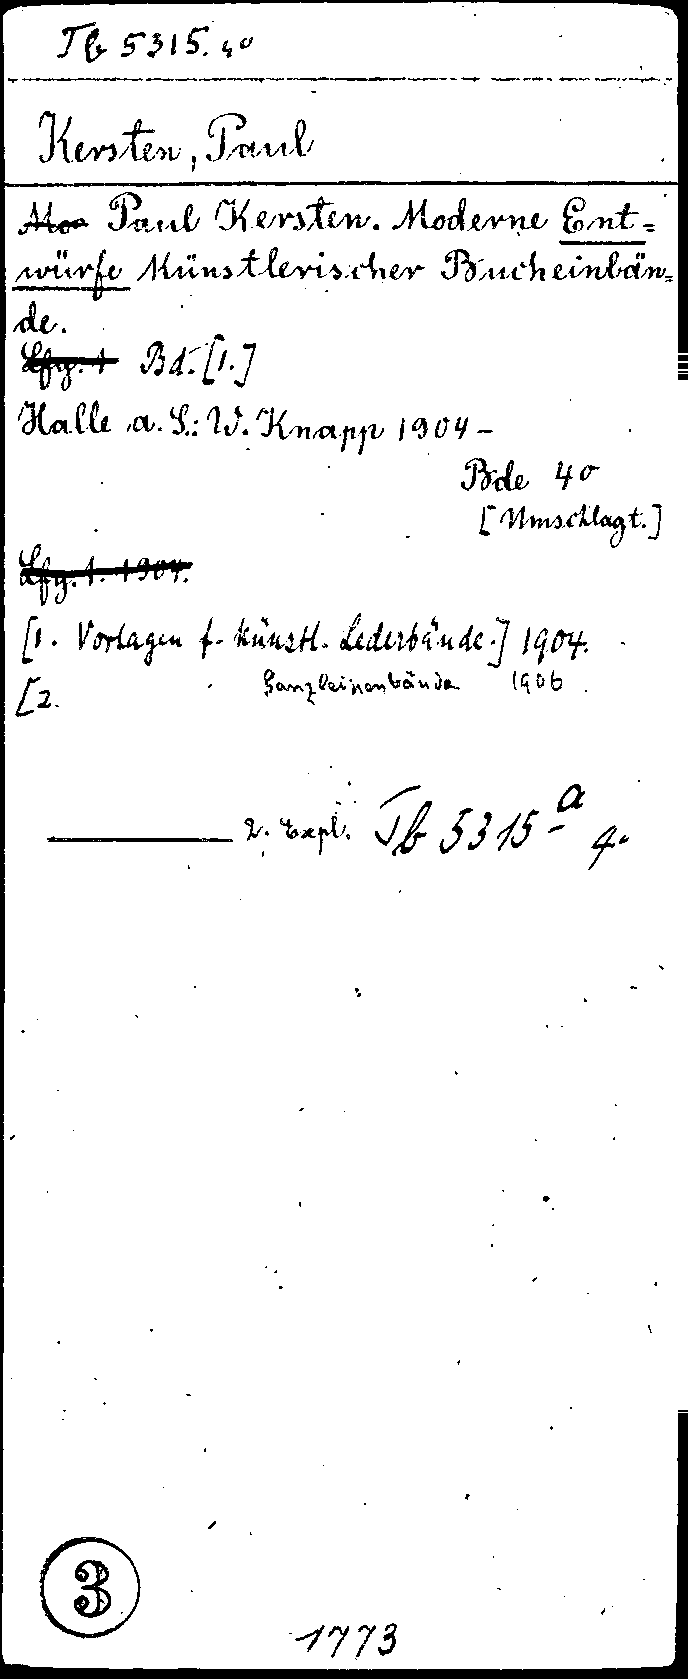 Tb 5315. 4o
Kersten, Paul
Mo Paul Kersten. Moderne Ent=
würfe künstlerischer Bucheinbän=
de.
Lfg. 1 Bd. [1.]
Halle a. S.: W. Knapp 1904-
Bde 4o
[Umschlagt.]
Lfg. 1. 1904.
[1. Vorlagen f. künstl. Lederbände.] 1904.
[2. Ganzleinenbände 1906
2. Expl. Tb 5315 a 4o
3
1773